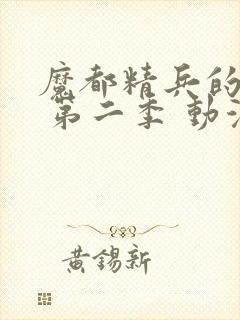 魔都精兵的
第二季 動
黃錫新